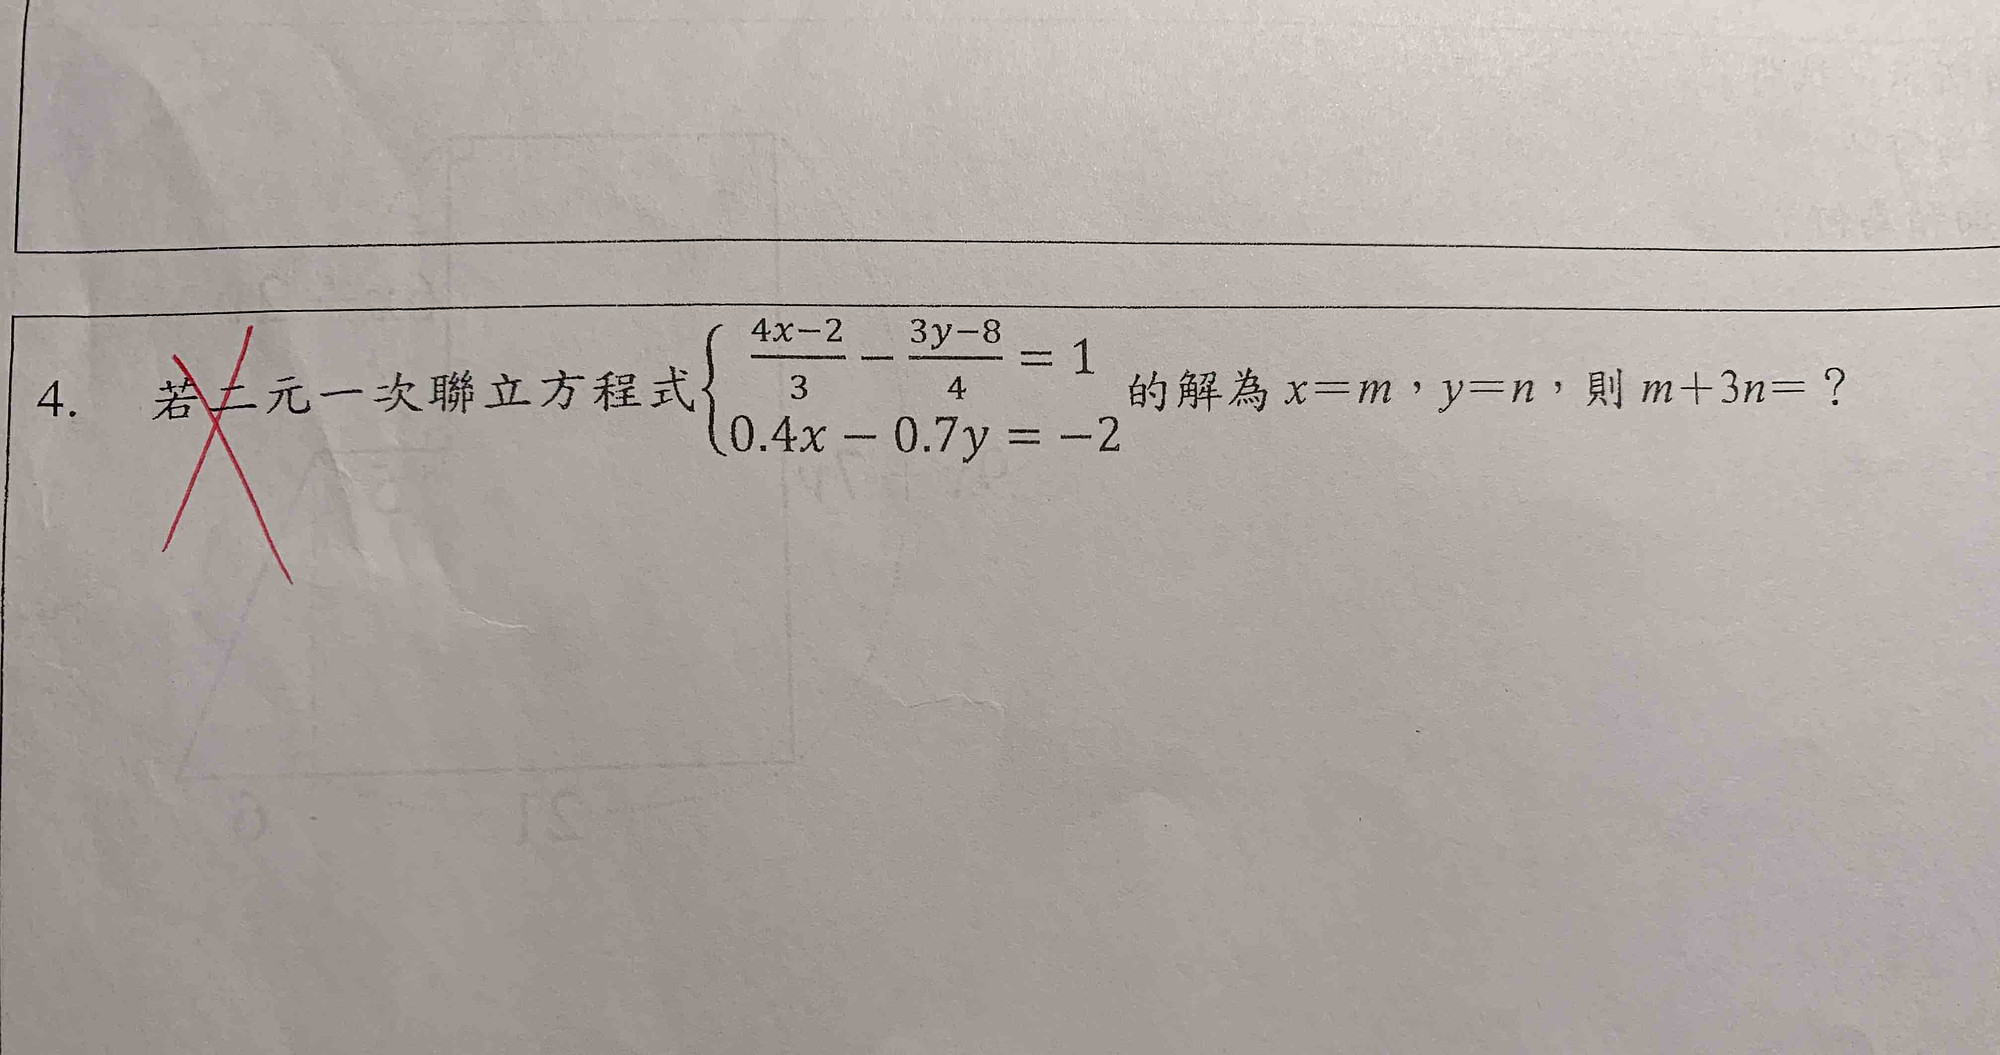 4. 若二元一次聯立方程式{ (4x−2)/3 − (3y−8)/4 = 1 的解為 x=m,y=n,則 m+3n=?
0.4x − 0.7y = −2